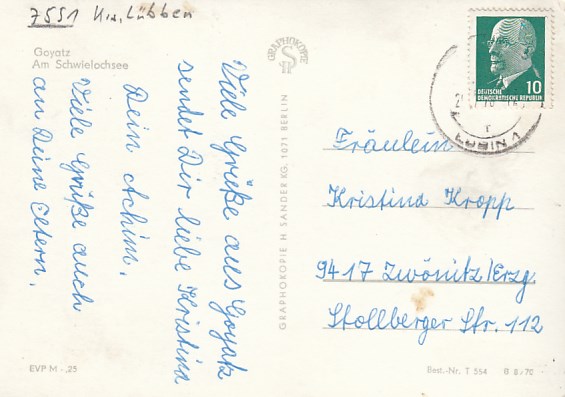 7551 Krs. Lübben
Goyatz
Am Schwielochsee
Viele Grüße aus Goyatz
sendet Dir liebe Kristina
Dein Achim.
Viele Grüße auch
an Deine Eltern.
EVP M -,25
GRAPHOKOPIE
GRAPHOKOPIE H SANDER KG, 1071 BERLIN
10
DEUTSCHE
DEMOKRATISCHE REPUBLIK
LÜBBEN 1
Fräulein
Kristina Kropp
9417 Zwönitz/Erzg.
Stollberger Str. 112
Best.-Nr. T 554 B 8/70